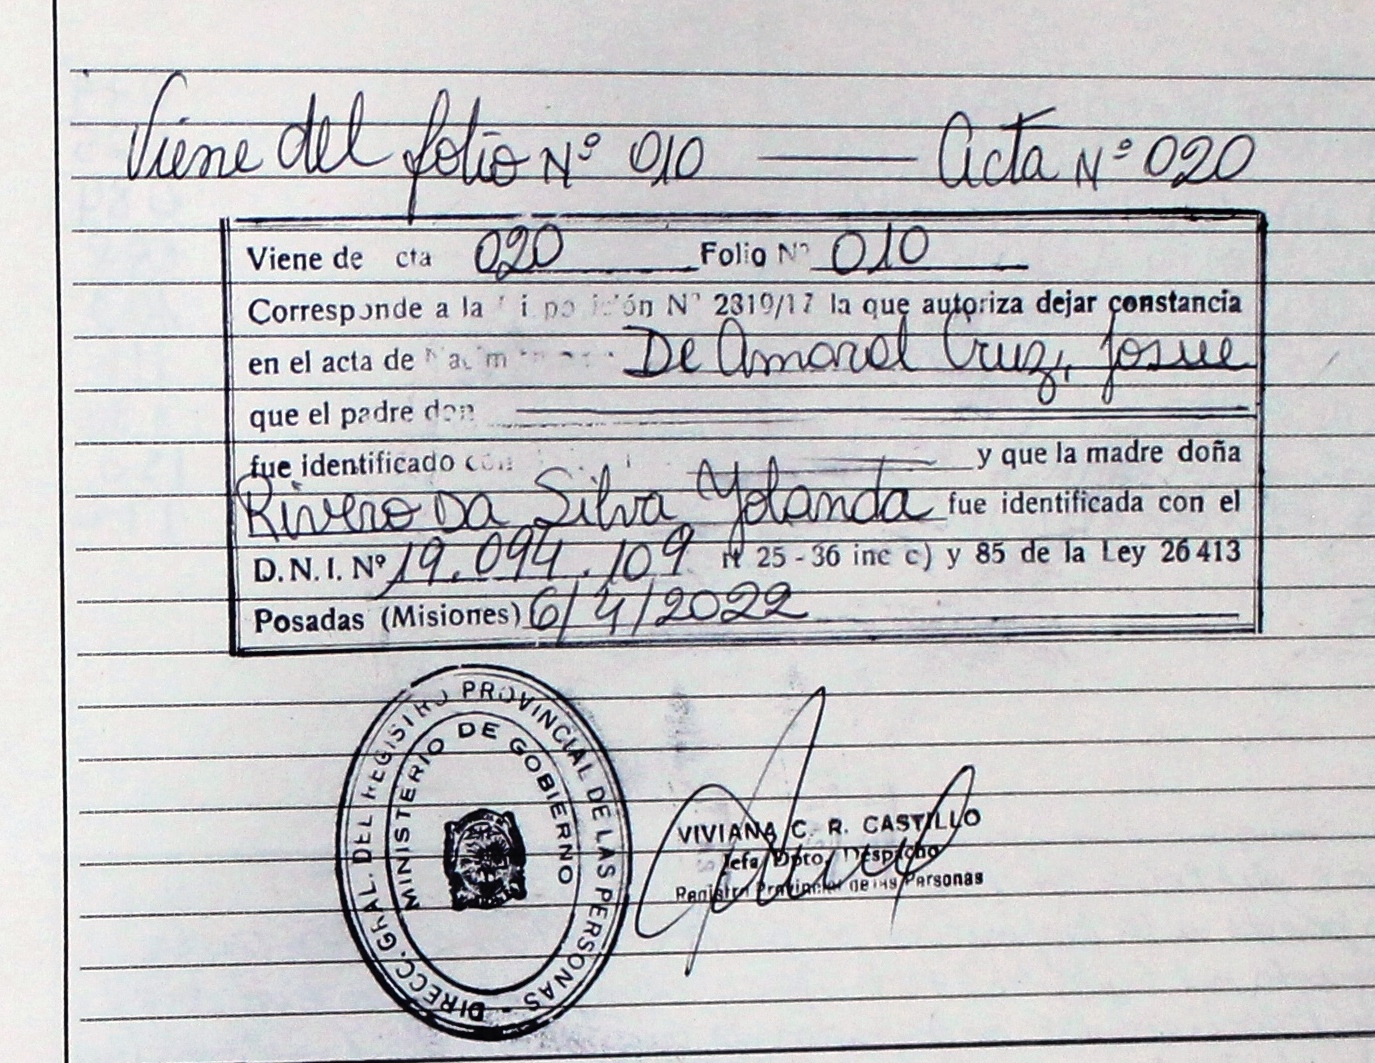 Viene del folio Nº 010 —— Acta Nº 020
Viene de cta 020 Folio Nº 010
Corresponde a la Nº 2319/17 la que autoriza dejar constancia
en el acta de De Amaral Cruz, Josue
que el padre don
fue identificado con y que la madre doña
Rivero Da Silva Yolanda fue identificada con el
D.N.I. Nº 19.094.109 rt 25-36 inc c) y 85 de la Ley 26413
Posadas (Misiones) 6/4/2022
DIRECC. GRAL. DEL REGISTRO PROVINCIAL DE LAS PERSONAS -
MINISTERIO DE GOBIERNO
VIVIANA C. R. CASTILLO
Jefa Dpto. Despacho
Registro Provincial de las Personas